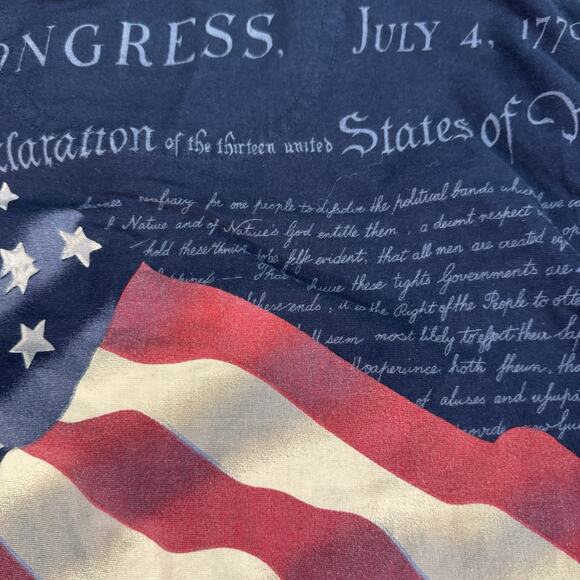 ONGRESS, JULY 4, 1776
claration of the thirteen united States of
for one people to dissolve the political bands which have co
Nature and of Nature's God entitle them, a decent respect
hold these to be self evident; that all men are created eq
That these rights Governments are
these ends, it is the Right of the People to alte
ll seem most likely to effect their Saf
hath shewn, tha
of abuses and usurpa